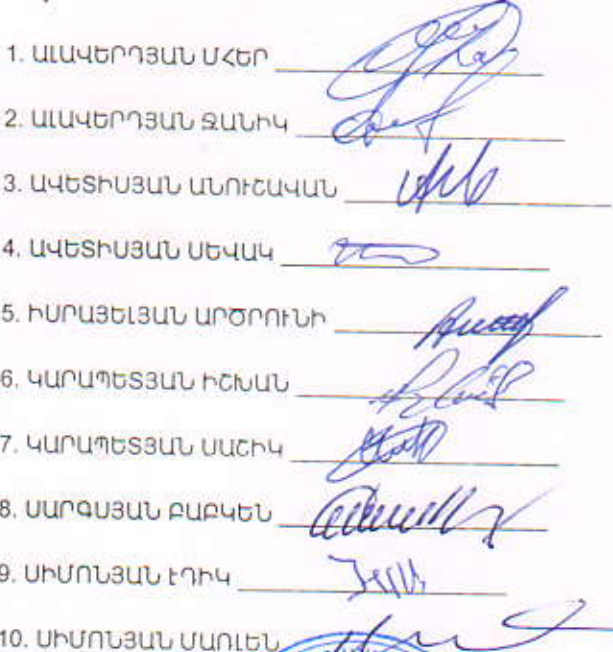 1. ԱԼԱՎԵՐԴՅԱՆ ՄՀԵՐ
2. ԱԼԱՎԵՐԴՅԱՆ ՋԱՆԻԿ
3. ԱՎԵՏԻՍՅԱՆ ԱՆՈՒՇԱՎԱՆ
4. ԱՎԵՏԻՍՅԱՆ ՍԵՎԱԿ
5. ԻՍՐԱՅԵԼՅԱՆ ԱՐԾՐՈՒՆԻ
6. ԿԱՐԱՊԵՏՅԱՆ ԻՇԽԱՆ
7. ԿԱՐԱՊԵՏՅԱՆ ՍԱՇԻԿ
8. ՍԱՐԳՍՅԱՆ ԲԱԲԿԵՆ
9. ՍԻՄՈՆՅԱՆ ԷԴԻԿ
10. ՍԻՄՈՆՅԱՆ ՄԱՌԼԵՆ